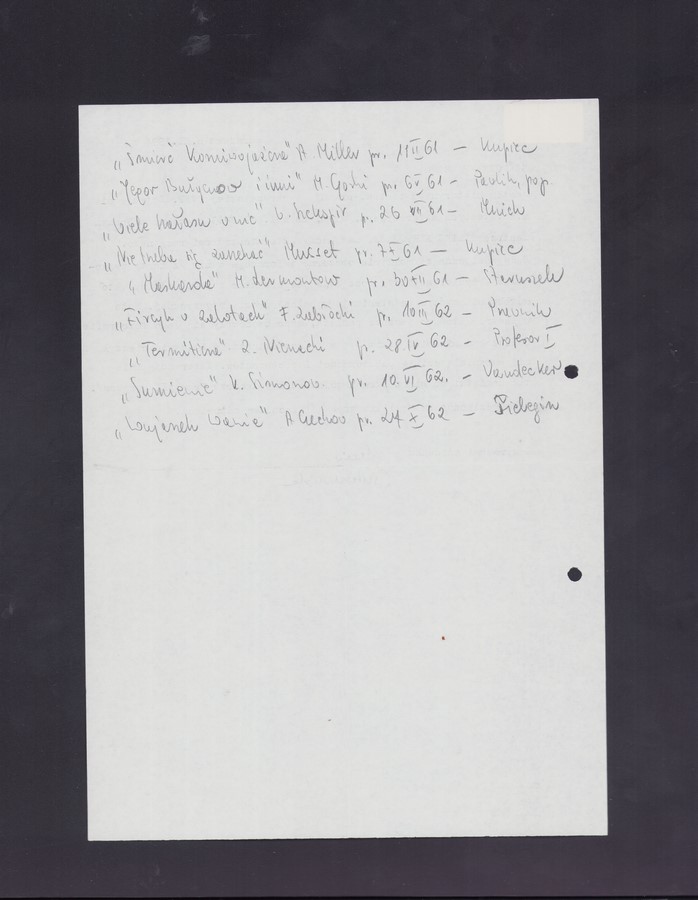 „Śmierć Komiwojażera" A. Miller pr. 11 II 61 — Kupiec
„Jegor Bułyczow i inni" M. Gorki pr. 6 V 61 — Pavlin, pop.
„Wiele hałasu o nic" W. Szekspir p. 26 VII 61 — Mnich
„Nie trzeba się zarzekać" Musset pr. 7 X 61 — Kupiec
„Maskarada" M. Lermontow pr. 30 XII 61 — Staruszek
„Fircyk w zalotach" F. Zabłocki pr. 10 III 62 — Prawnik
„Termitiera" Z. Nienacki p. 28 IV 62 — Profesor I
„Sumienie" K. Simonow pr. 10. VI 62. — Vandecker
„Wujaszek Wania" A Czechow pr. 27 X 62 — Tieliegin